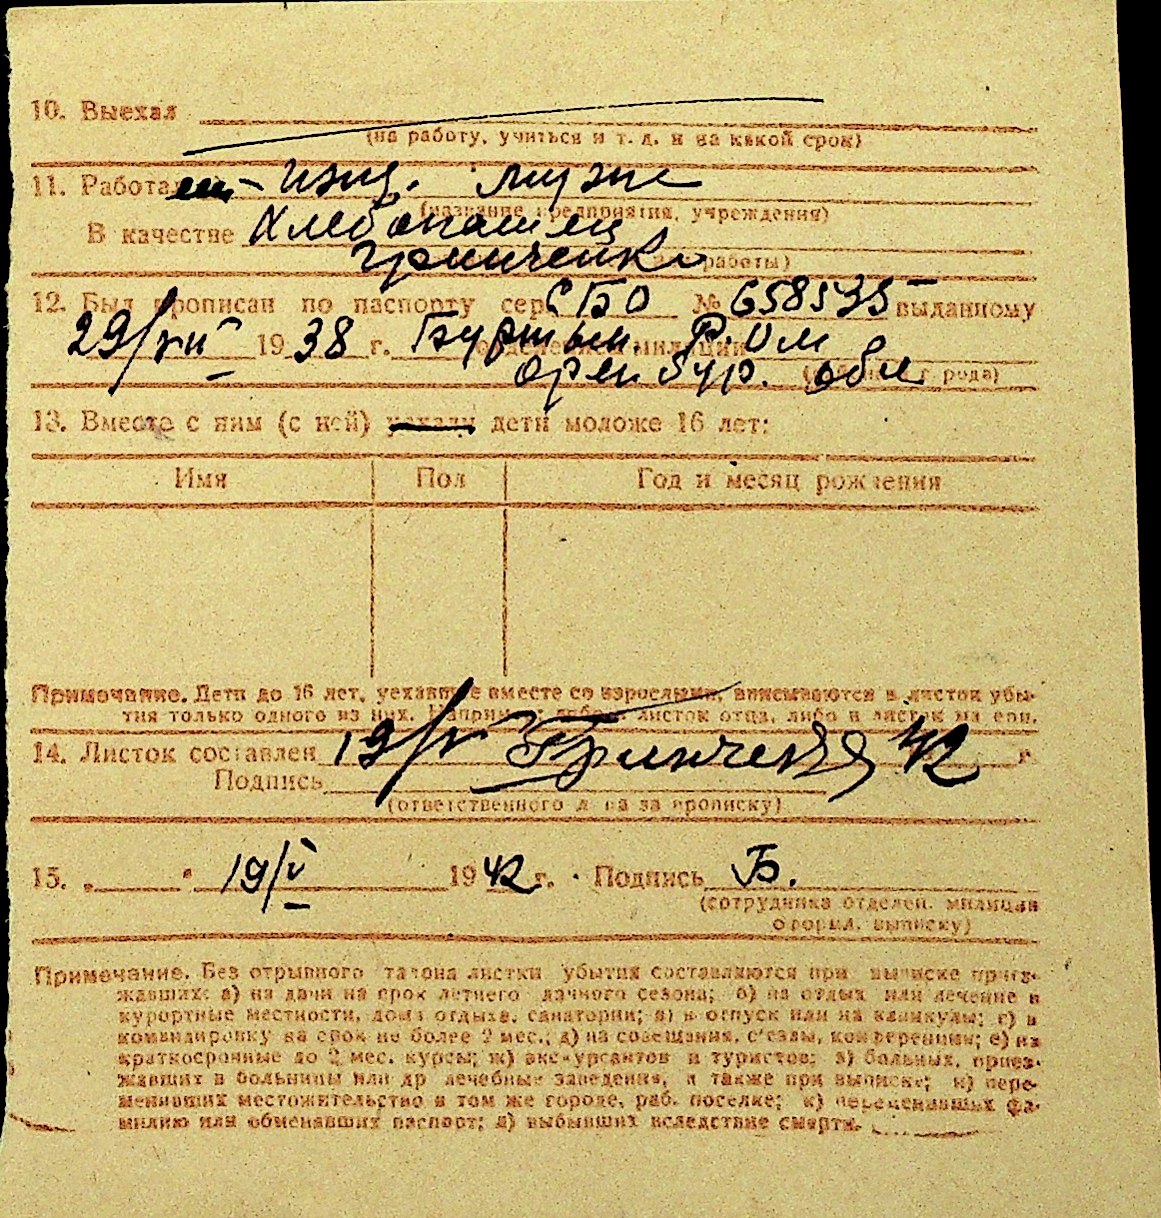 10. Выехал
(на работу, учиться и т. д. и на какой срок)
11. Работал ижд. мужа
(название предприятия, учреждения)
В качестве Хлебопашец
Гринченко работы)
12. Был прописан по паспорту сер. СБО № 658535 выданному
29/VII 1938 г. Буртын. Р.О.М отделением милиции
Оренбур. обл рода)
13. Вместе с ним (с ней) уехали дети моложе 16 лет:
Имя Пол Год и месяц рождения
Примечание. Дети до 16 лет, уехавшие вместе со взрослыми, вписываются в листок убы-
тия только одного из них. Например: либо в листок отца, либо в листок матери.
14. Листок составлен 19/V Гринченко 42 г
Подпись
(ответственного лица за прописку)
15. „ " 19/V 1942 г. Подпись Б.
(сотрудника отделен. милиции
оформл. выписку)
Примечание. Без отрывного талона листки убытия составляются при выписке приез-
жавших: а) на дачи на срок летнего дачного сезона; б) на отдых или лечение в
курортные местности, дома отдыха, санатории; в) в отпуск или на каникулы; г) в
командировку на срок не более 2 мес.; д) на совещания, съезды, конференции; е) на
краткосрочные до 2 мес. курсы; ж) экскурсантов и туристов; з) больных, приез-
жавших в больницы или др лечебные заведения, а также при выписке; и) пере-
менивших местожительство в том же городе, раб. поселке; к) переменивших фа-
милию или обменявших паспорт; л) выбывших вследствие смерти.